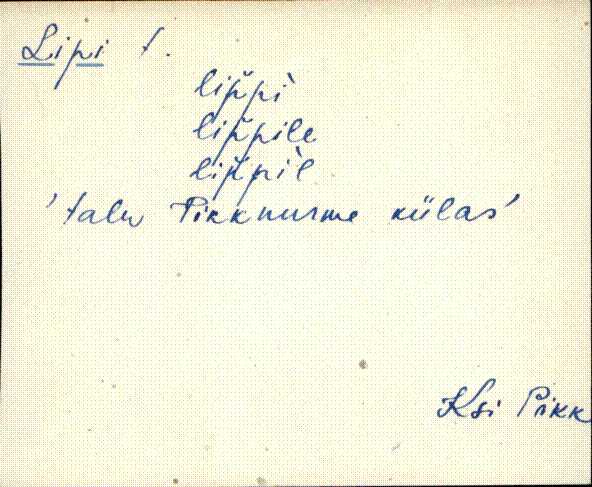 Lipi t.
lip̆pì
lip̆pile
lip̆pìl
'talu Pikknurme külas'
Ksi Pikk